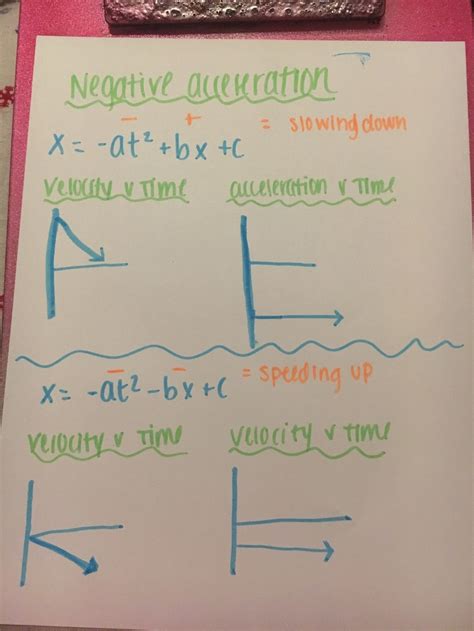 Negative acceleration
- +
x = -at² + bx + c = slowing down
velocity v Time
acceleration v Time
- -
x = -at² - bx + c = speeding up
velocity v Time
velocity v time